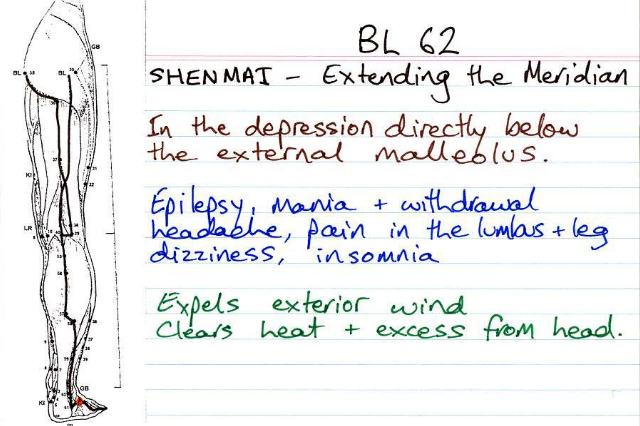 BL 62
SHENMAI - Extending the Meridian
In the depression directly below
the external malleolus.
Epilepsy, mania + withdrawal
headache, pain in the lumbus + leg
dizziness, insomnia
Expels exterior wind
Clears heat + excess from head.
GB
BL
BL
KI
LR
GB
KI